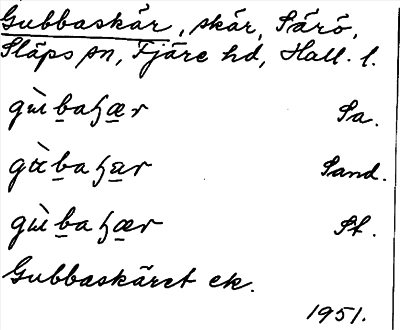 Gubbaskär, skär, Särö,
Släps sn, Fjäre hd, Hall. l.
gùbaɧær Sa.
gùbaɧär Sand.
gùbaɧær St.
Gubbaskäret ek.
1951.